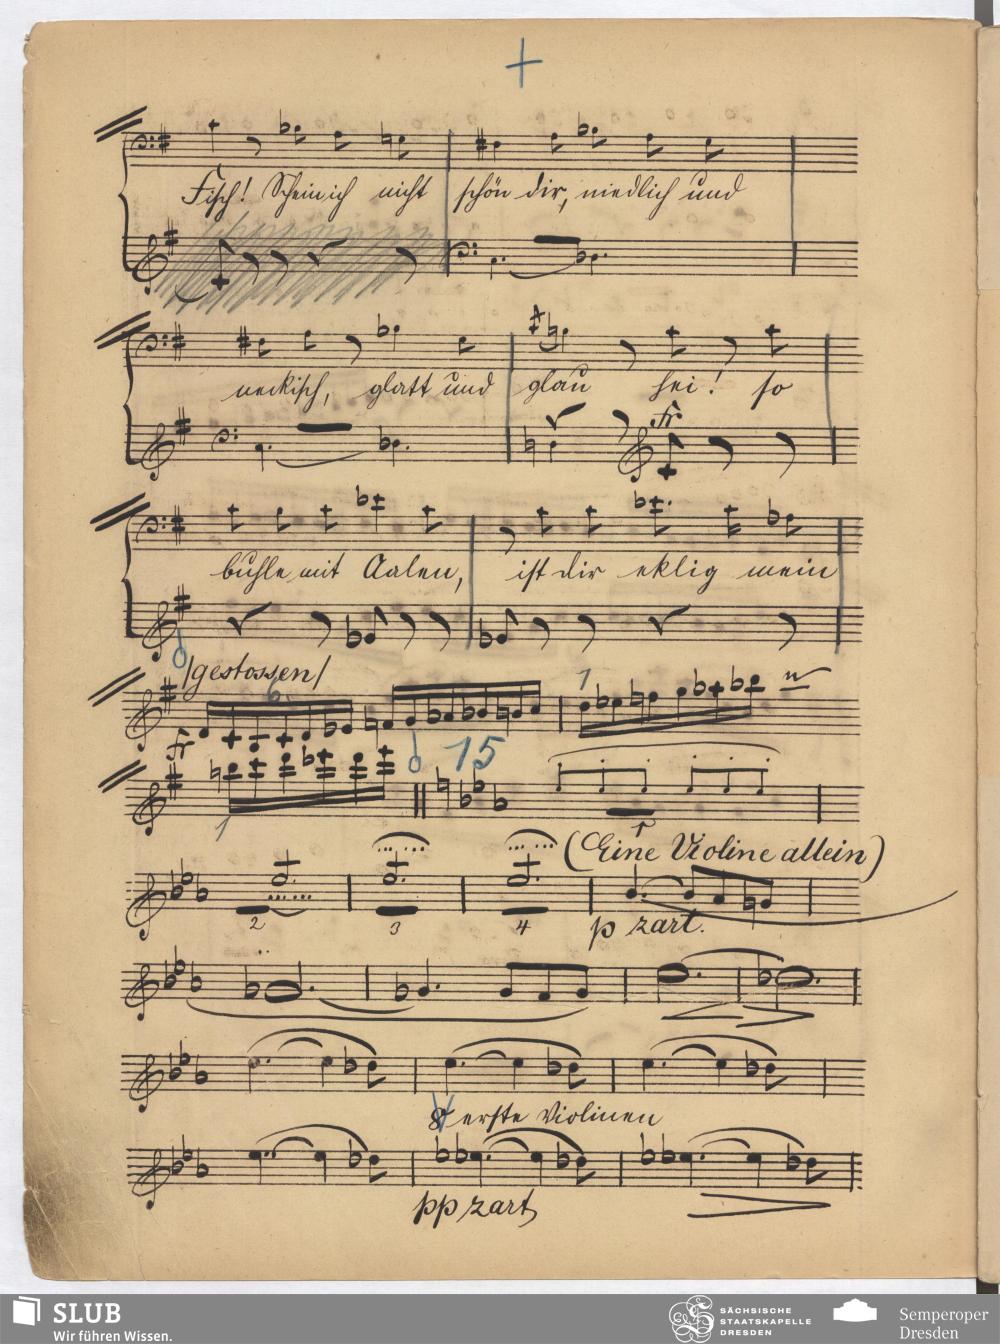 Fisch! Schein ich nicht schön dir, niedlich und
neckisch, glatt und glau sei! so
fr.
buhle mit Aalen, ist dir eklig mein
/gestossen/
6.
1
fr
15
1
(Eine Violine allein)
2 3 4 p zart.
8 erste Violinen
pp zart
SLUB
Wir führen Wissen.
SÄCHSISCHE
STAATSKAPELLE
DRESDEN
Semperoper
Dresden